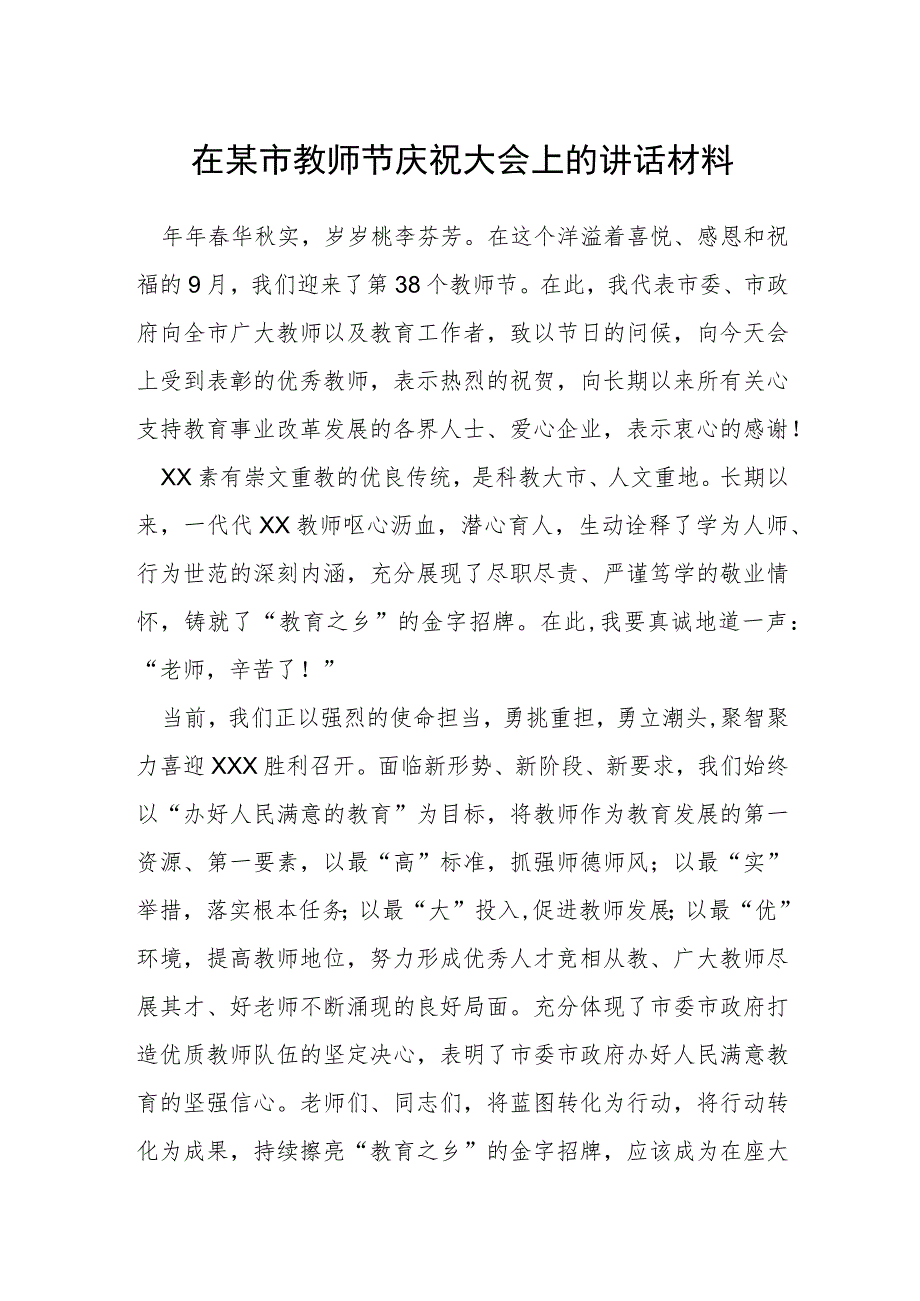 在某市教师节庆祝大会上的讲话材料
年年春华秋实，岁岁桃李芬芳。在这个洋溢着喜悦、感恩和祝
福的9月，我们迎来了第38个教师节。在此，我代表市委、市政
府向全市广大教师以及教育工作者，致以节日的问候，向今天会
上受到表彰的优秀教师，表示热烈的祝贺，向长期以来所有关心
支持教育事业改革发展的各界人士、爱心企业，表示衷心的感谢！
XX素有崇文重教的优良传统，是科教大市、人文重地。长期以
来，一代代XX教师呕心沥血，潜心育人，生动诠释了学为人师、
行为世范的深刻内涵，充分展现了尽职尽责、严谨笃学的敬业情
怀，铸就了“教育之乡”的金字招牌。在此,我要真诚地道一声：
“老师，辛苦了！”
当前，我们正以强烈的使命担当，勇挑重担，勇立潮头,聚智聚
力喜迎XXX胜利召开。面临新形势、新阶段、新要求，我们始终
以“办好人民满意的教育”为目标，将教师作为教育发展的第一
资源、第一要素，以最“高”标准，抓强师德师风；以最“实”
举措，落实根本任务;以最“大”投入,促进教师发展;以最“优”
环境，提高教师地位，努力形成优秀人才竞相从教、广大教师尽
展其才、好老师不断涌现的良好局面。充分体现了市委市政府打
造优质教师队伍的坚定决心，表明了市委市政府办好人民满意教
育的坚强信心。老师们、同志们，将蓝图转化为行动，将行动转
化为成果，持续擦亮“教育之乡”的金字招牌，应该成为在座大